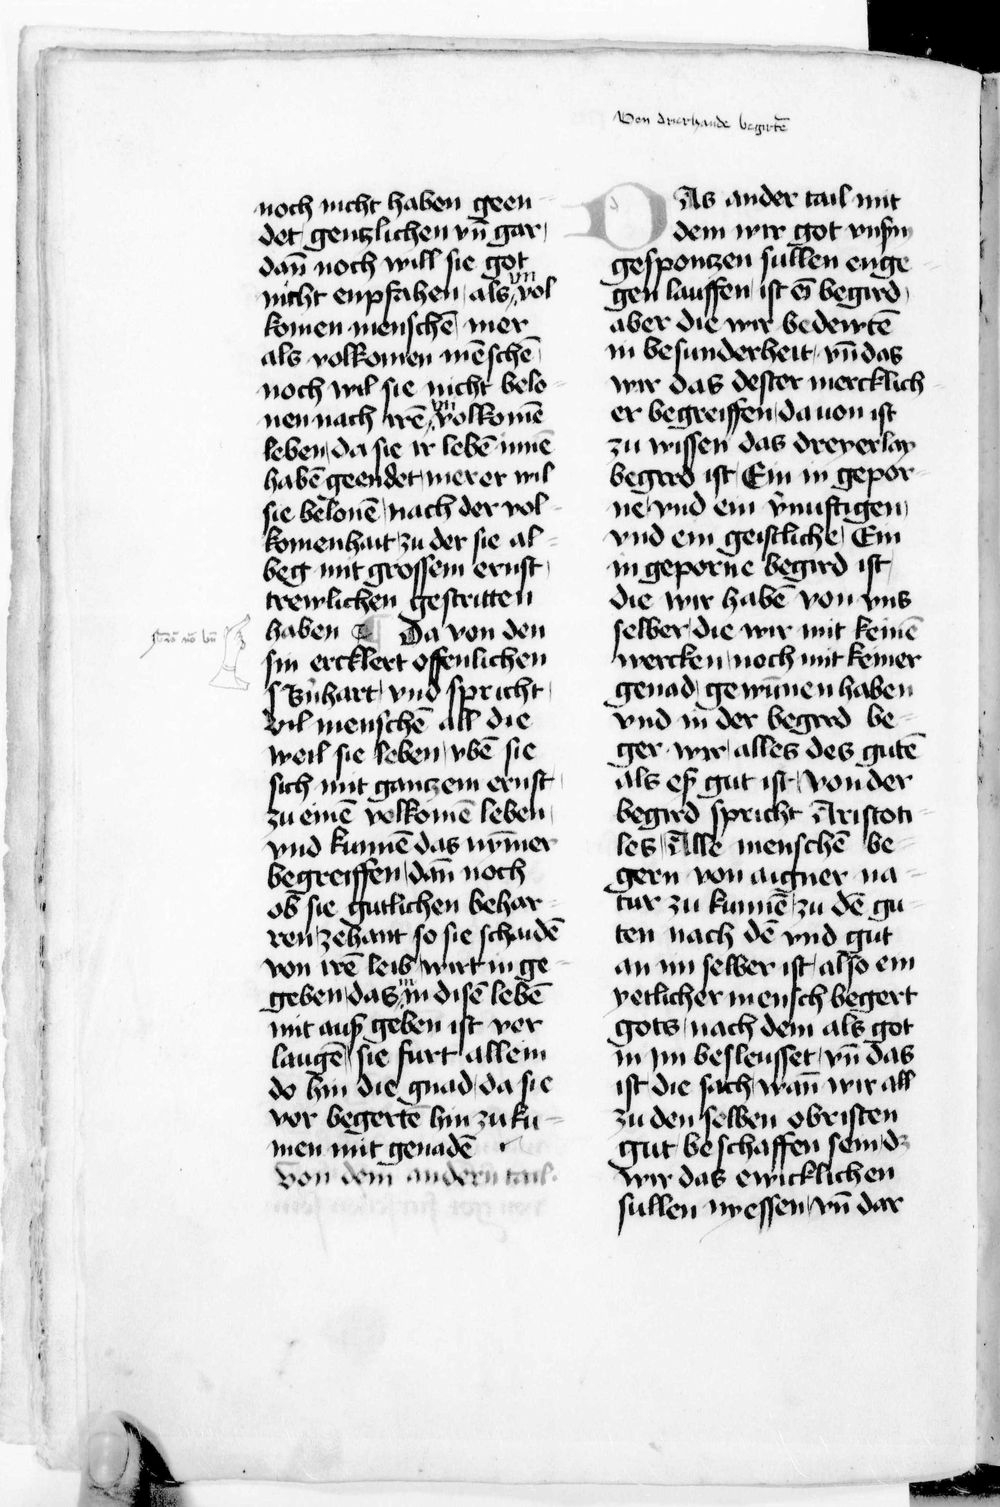 Von drierhande begirtē
noch nicht haben geen-
det gentzlichen vn̄ gar,
dan̄ noch will sie got
nicht enpfahen, als vn vol
komen menschē, mer
als volkomen mēschē,
noch wil sie nicht belo-
nen nach irē vn volkomē
leben, da sie ir lebē innē
habē geendet, mer er wil
sie belonē, nach der vol-
komenhait, zu der sie al-
beg mit grossem ernst,
trewlichen gestritten
haben Da von den
sin ercklert offenlichen
s Bn̄hart, vnd spricht,
vil menschē all die
weil sie leben, vbē sie
sich mit gantzem ernst,
zu einē volkomē leben,
vnd kunnē das nym̄er
begreiffen, dan̄ noch
ob sie gutlichen behar-
ren, zehant so sie schaidē
von irē leib, wirt in ge-
geben, das in in disē lebē
mit auß geben ist ver
laugē, sie furt allein
do hin die gnad, da sie
vor begertē hin zu ku-
men mit genadē
Von dem andern tail.
DAs ander tail mit
dem wir got vnsym
gespontzen sullen enge-
gen lauffen, ist ein begird,
aber die wir bedewtē
in besunderheit, vn̄ das
wir das dester mercklich-
er begreiffen, da uon ist
zu wissen das dreyerlay
begird ist, Ein in gepor-
ne, vnd ein v̄nuftigen,
vnd ein geistliche, Ein
in geporne begird ist,
die wir habē von vns
selber, die wir mit keinē
wercken, noch mit keiner
genad, gewūnen haben
vnd in der begird be-
ger wir, alles des gutē
als eß gut ist, Von der
begird spricht Aristoti-
les, Alle menschē be-
gern von aigner na-
tur zu kunnē, zu dē gu-
ten nach dē vnd gut
an im selber ist, also ein
yetlicher mensch begert
gots, nach dem als got
in im besleusset, vn̄ das
ist die sach, wan̄ wir all
zu den selben obristen
gut, beschaffen sein, dz
wir das ewicklichen
sullen nyessen, vn̄ dar